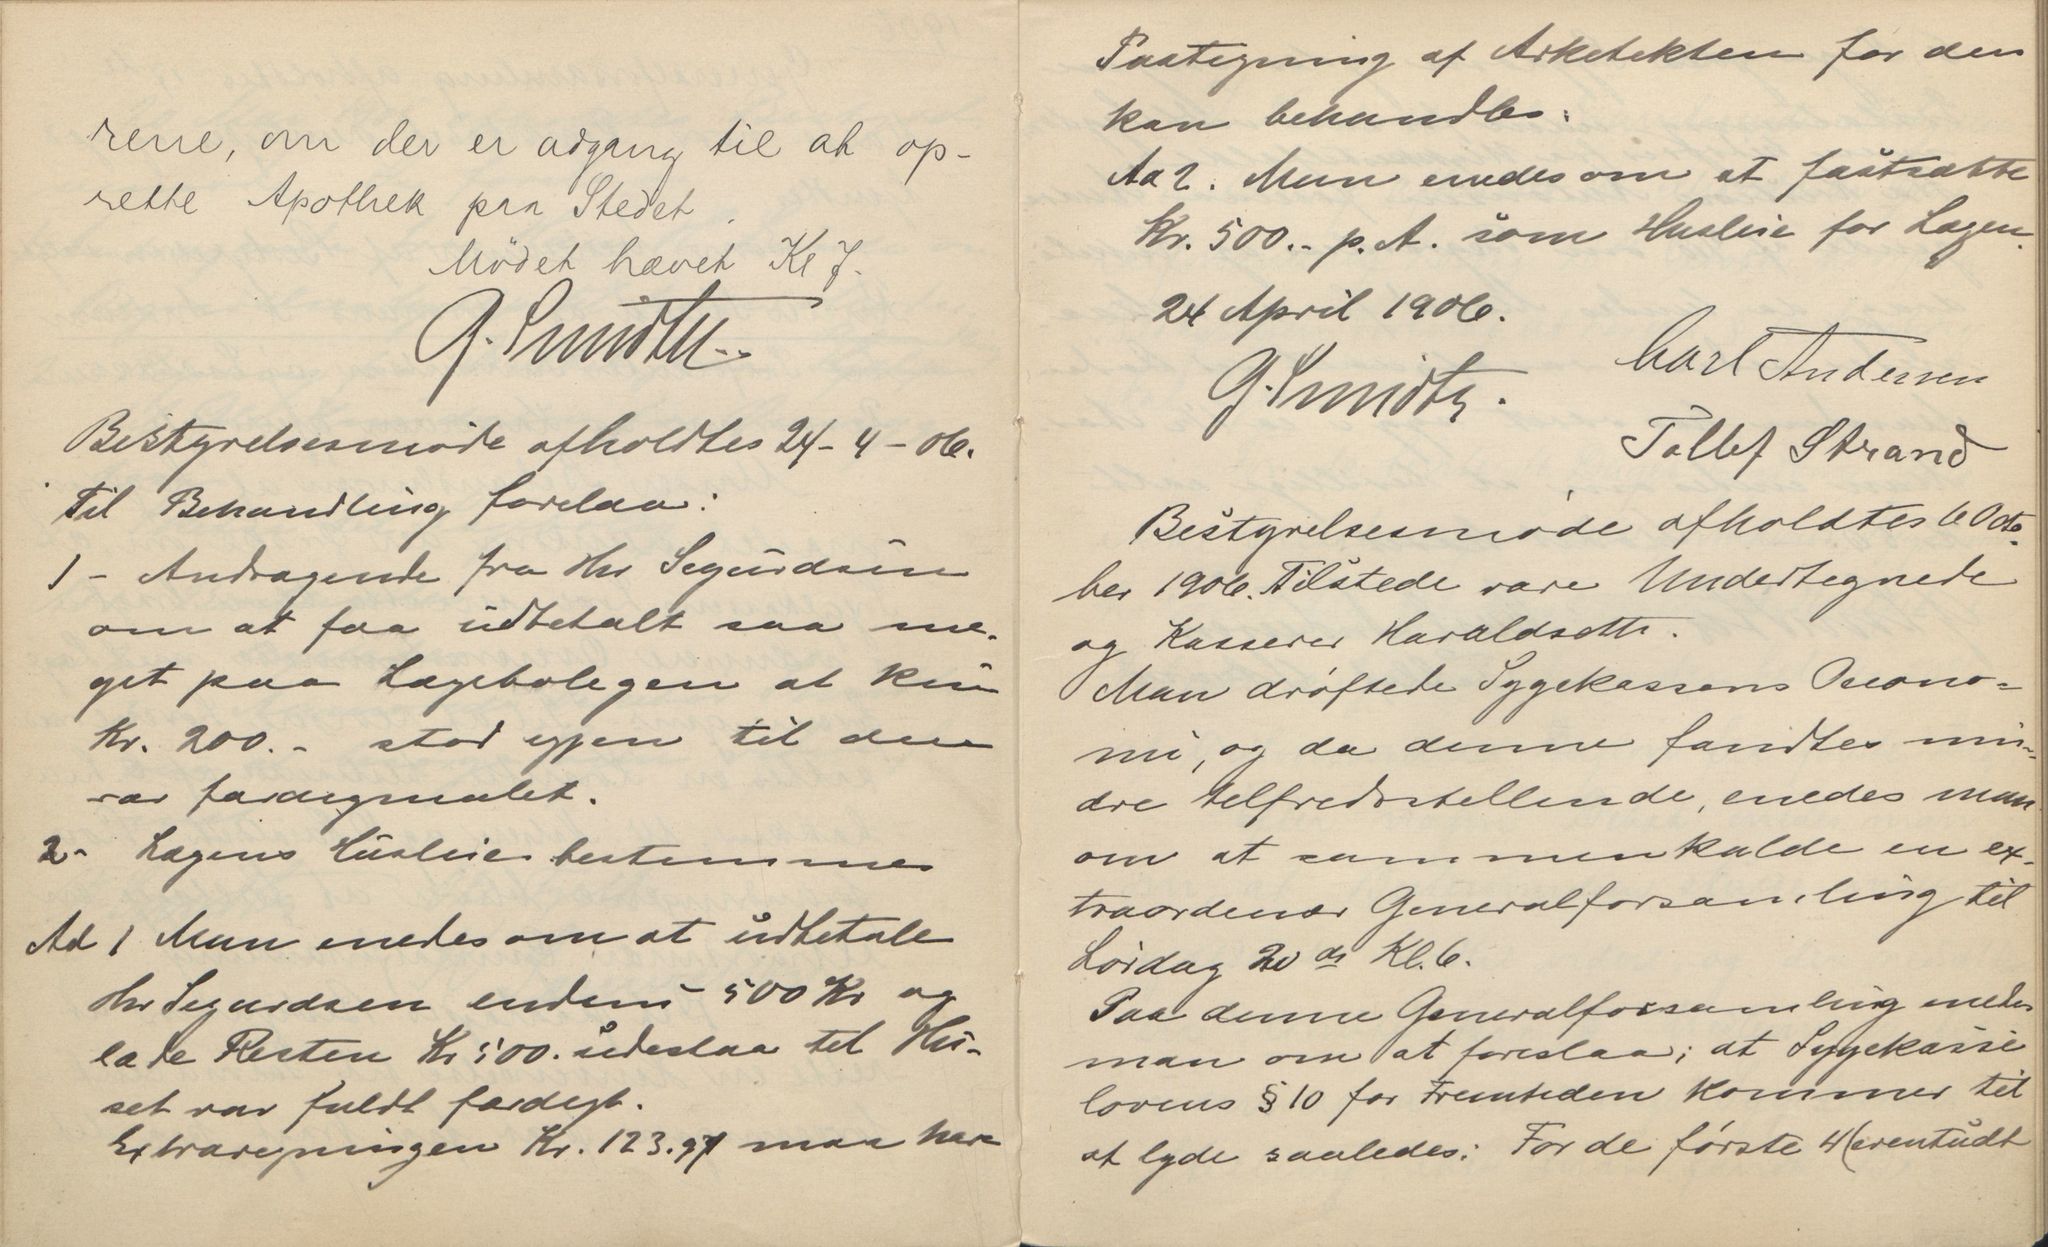 rerre, om der er adgang til at op-
rette Apothek paa Stedet.
Mödet hævet Kl 7.
G. Smidth..
Bestyrelsesmøde afholdtes 24-4-06.
Til Behandling forelaa:
1 - Andragende fra Hr Segurdsen
om at faa udbetalt saa me-
get paa Lægebolegen at kun
Kr. 200.- stod igjen til den
var færdigmalet.
2- Lægens Husleie bestemmes
Ad 1 Man enedes om at udbetale
Hr Segurdsen endnu 500 Kr og
lade Resten Kr 500. udestaa til Hu-
set var fuldt færdigt.
Extraregningen Kr. 123.97 maa have
Paategning af Arketekten før den
kan behandles.
Ad 2. Man enedes om at fastsætte
Kr. 500.- p. A. som Husleie for Lægen.
24 April 1906.
G. Smidth. Carl Andersen
Tollef Strand
Bestyrelsesmøde afholdtes 6 Octo-
ber 1906. Tilstede vare Undertegnede
og Kasserer Haraldseth.
Man drøftede Sygekassens Oecono-
mi, og da denne fandtes min-
dre telfredsstellende, enedes man
om at sammenkalde en ex-
traordenær Generalforsamling til
Lørdag 20 ds Kl. 6.
Paa denne Generalforsamling enedes
man om at foreslaa; at Sygekasse
lovens § 10 for Fremtiden kommer til
at lyde saaledes: For de første 4 (eventuelt